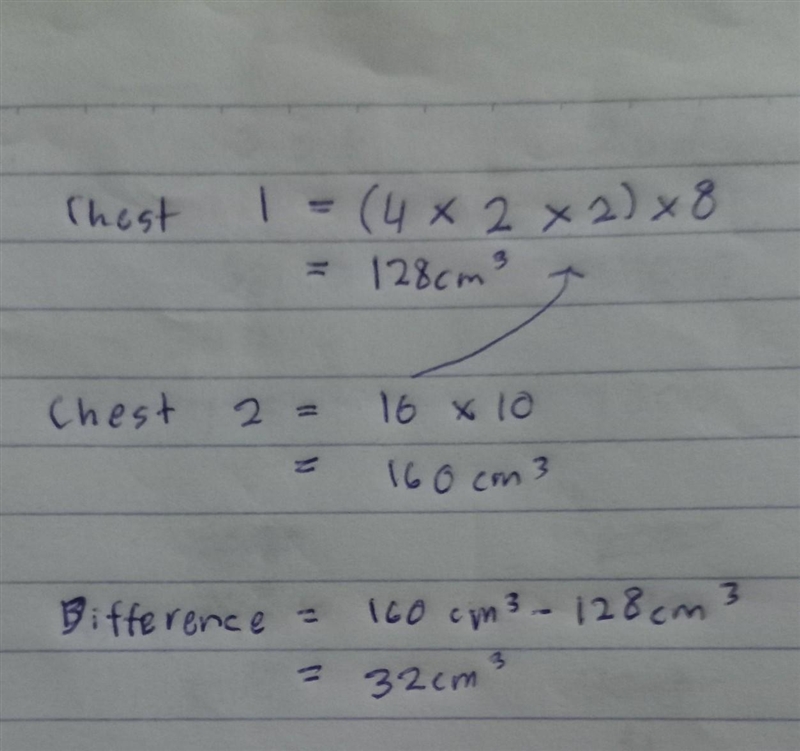 Chest 1 = (4 × 2 × 2) × 8
= 128cm³
Chest 2 = 16 × 10
= 160 cm³
Difference = 160 cm³ - 128cm³
= 32cm³